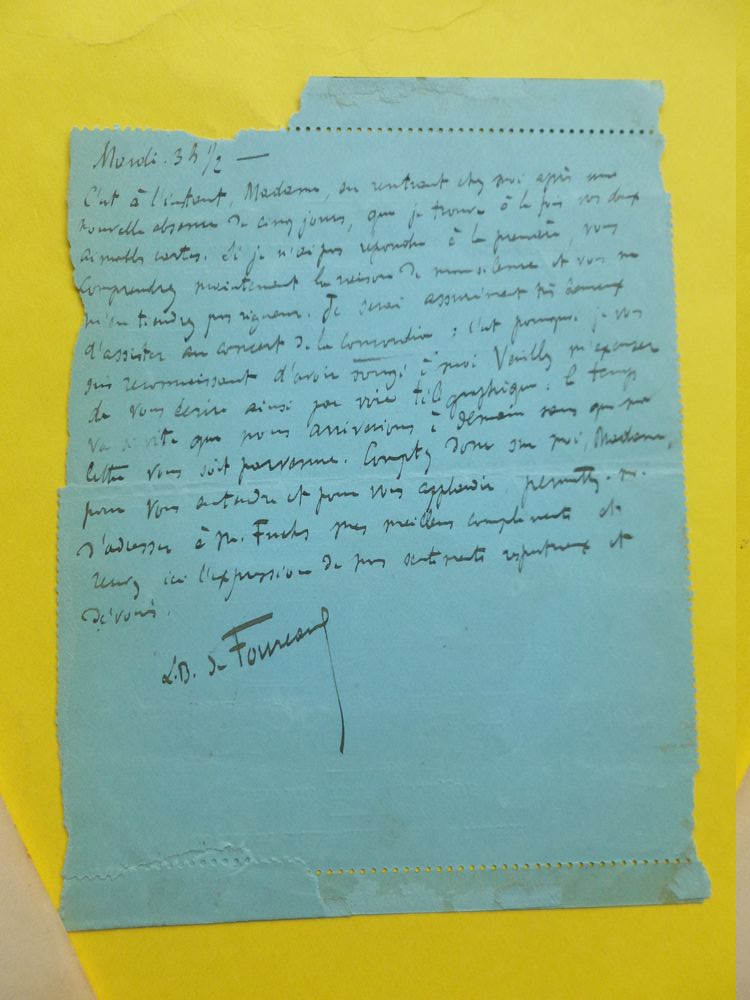 Mardi. 3 h 1/2 —
C'est à l'instant, Madame, en rentrant chez moi après une
nouvelle absence de cinq jours, que je trouve à la fois vos deux
aimables cartes. Si je n'ai pas répondu à la première, vous
comprendrez maintenant la raison de mon silence et vous ne
m'en tiendrez pas rigueur. Je serai assurément très heureux
d'assister au concert de la Concordia : c'est pourquoi je vous
suis reconnaissant d'avoir songé à moi. Veuillez m'excuser
de vous écrire ainsi par voie télégraphique : le temps
va si vite que nous arriverions à demain sans que ma
lettre vous soit parvenue. Comptez donc sur moi, Madame,
pour vous entendre et pour vous applaudir, permettez-moi
d'adresser à M. Fuchs mes meilleurs compliments et
recevez ici l'expression de mes sentiments respectueux et
dévoués.
L.B. de Fourcaud